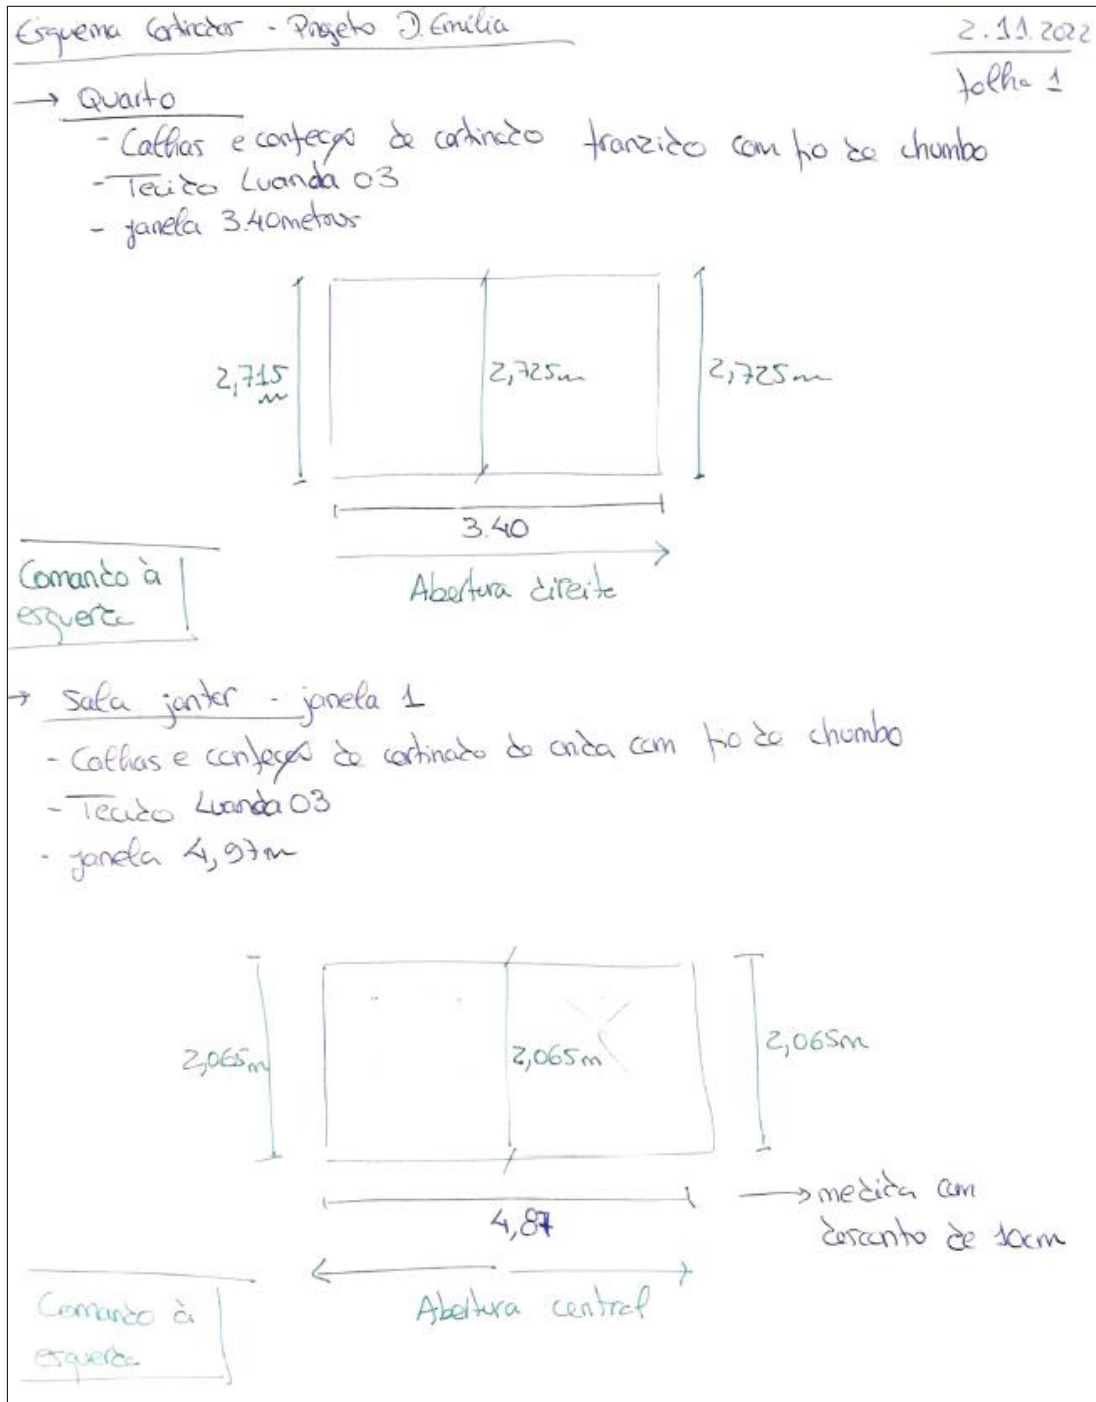 Esquema Cortinados - Projeto D. Emília
2.11.2022
folha 1
→ Quarto
- Calhas e confeção de cortinado franzido com fio de chumbo
- Tecido Luanda 03
- janela 3.40metros
2,715
m
2,725m
2,725m
3.40
Abertura direita
Comando à
esquerda
→ Sala jantar - janela 1
- Calhas e confeção de cortinado de onda com fio de chumbo
- Tecido Luanda 03
- janela 4,97m
2,065m
2,065m
2,065m
4,87
→ medida com
desconto de 10cm
Abertura central
Comando à
esquerda